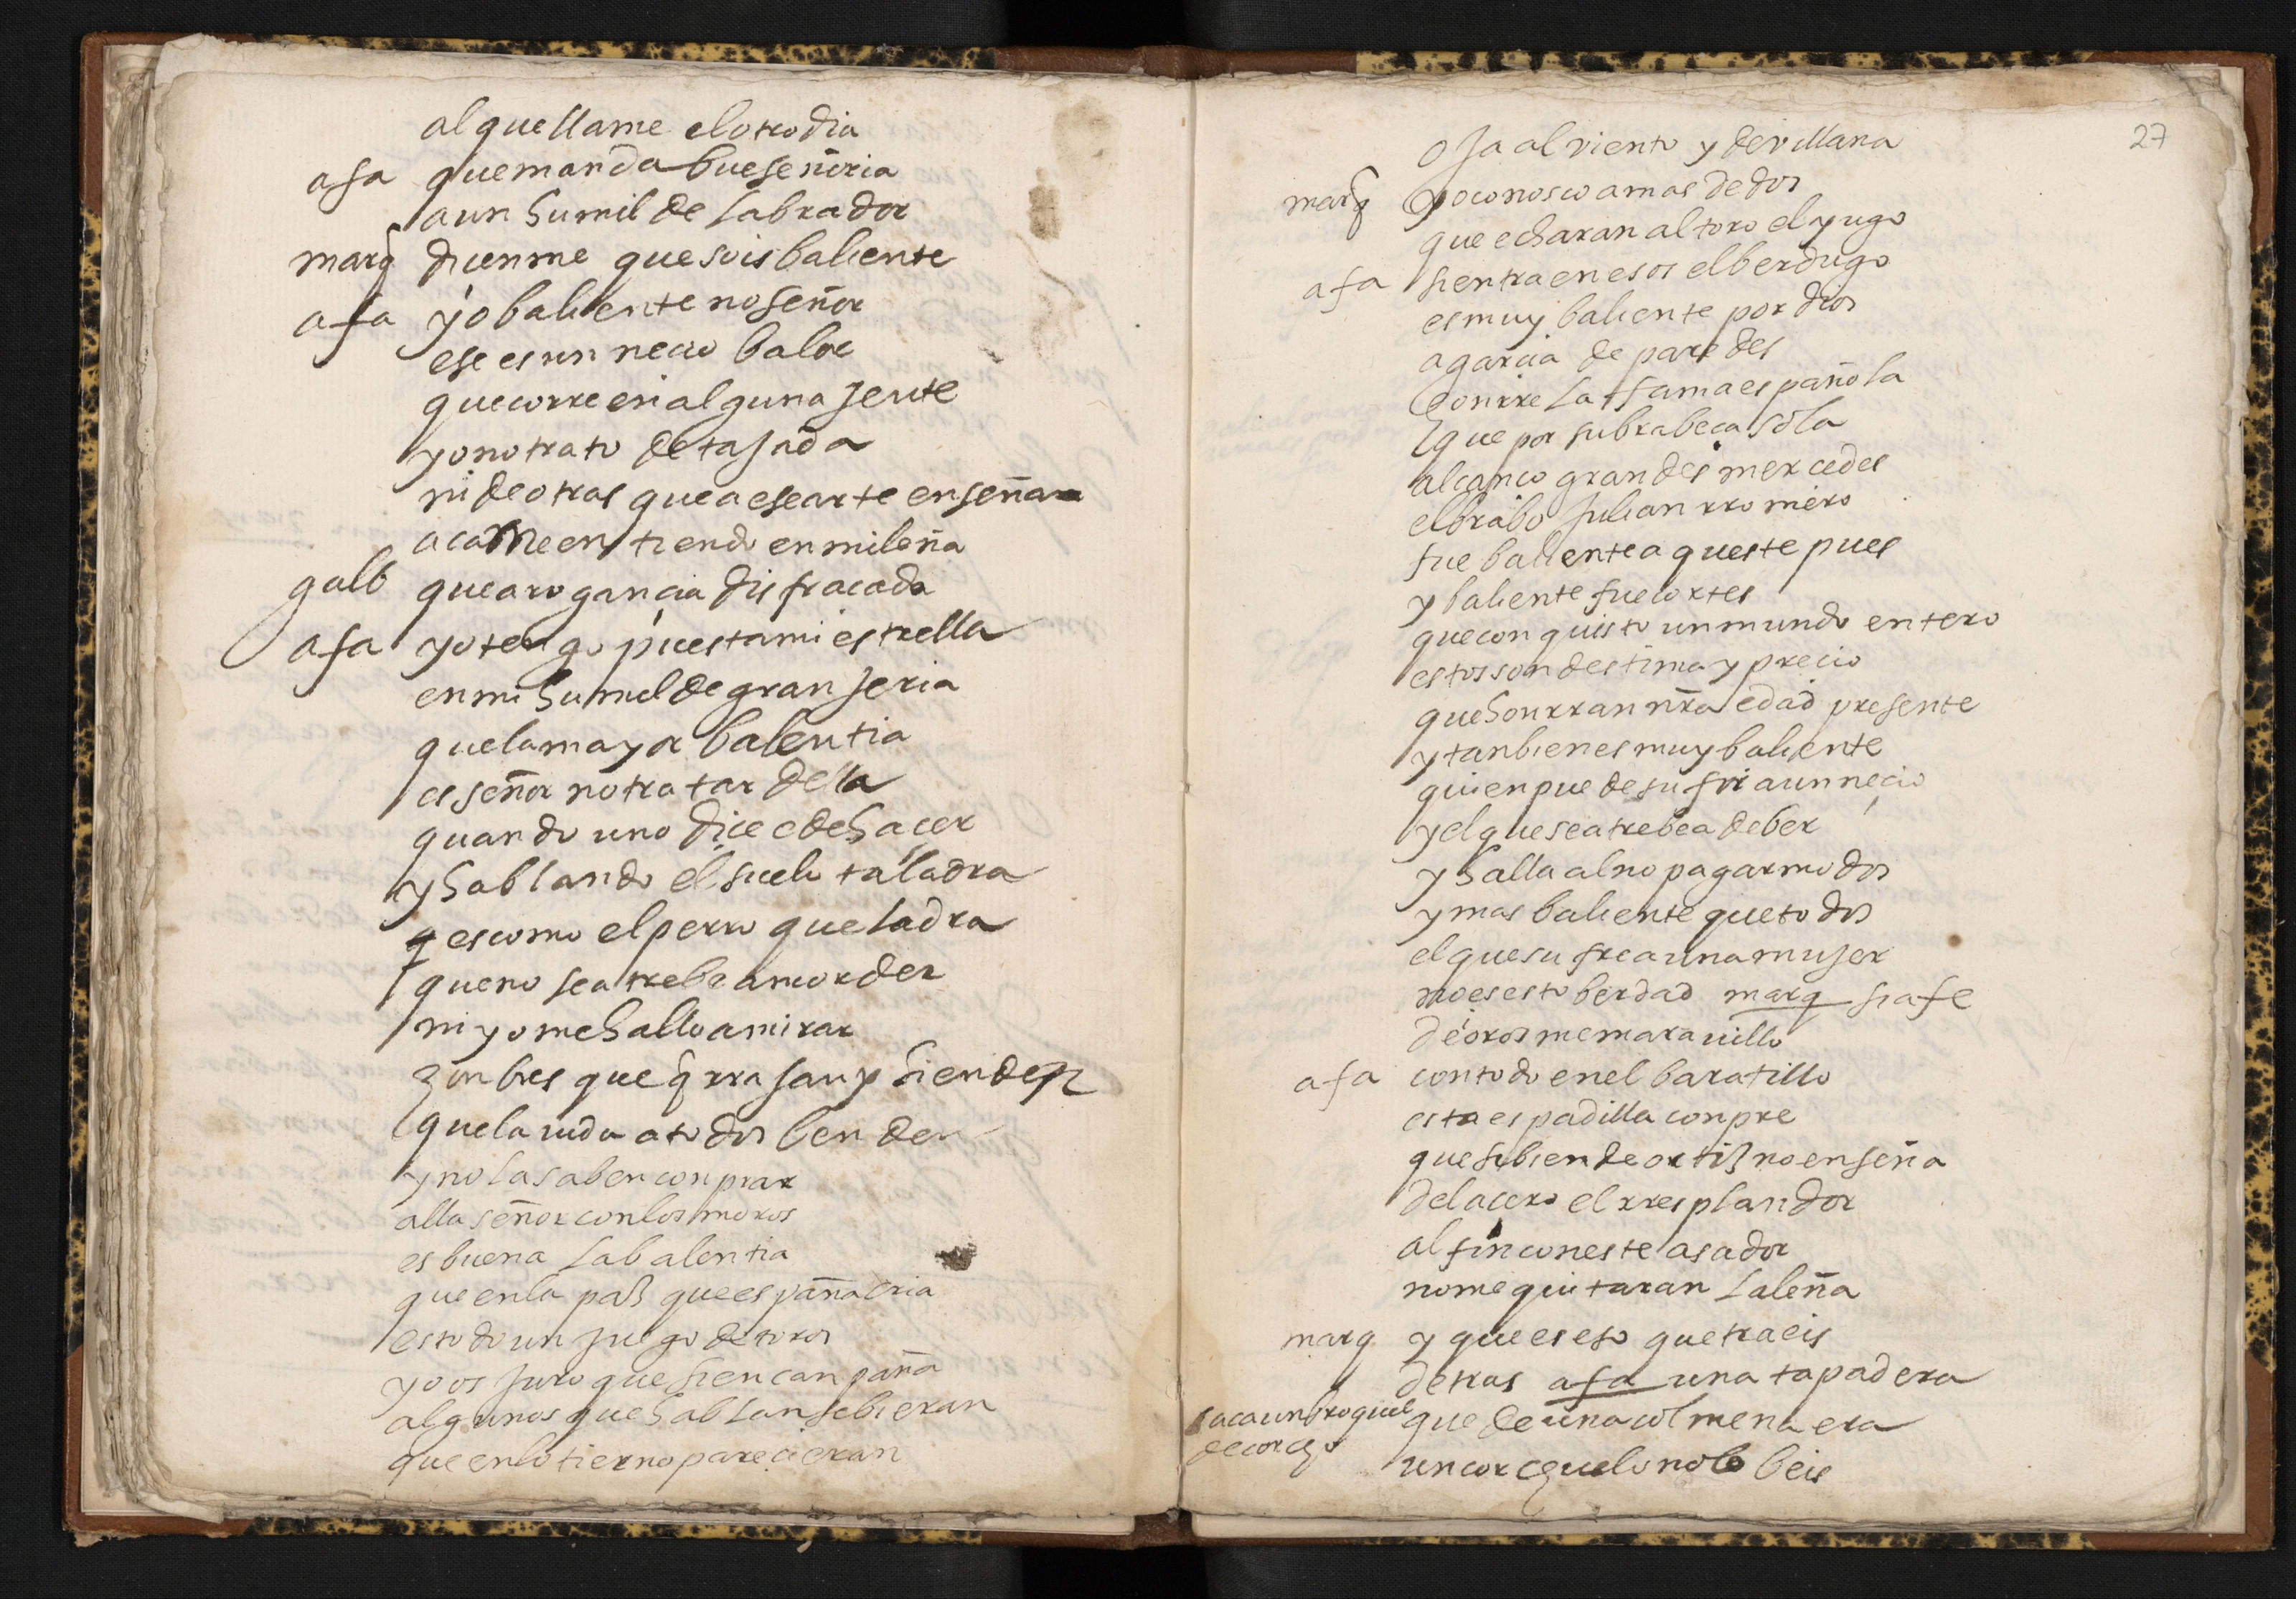 al que llame el otro dia
afa que manda bueseñoria
a un humilde labrador
marq dicenme que sois baliente
afa yo baliente no señor
ese es un necio balor
que corre en alguna jente
yo no trato de tajada
ni de otras que a ese arte enseña
aca me entiendo en mi leña
galb que arogancia disfracada
afa yo tengo puesta mi estrella
en mi humilde granjeria
que la mayor balentia
es señor no tratar della
quando uno dice e de haçer
y hablando el suelo taladra
es como el perro que ladra
que no se atrebe a morder
ni yo me hallo a mirar
honbres que rrajan y hienden
que la vida a todos benden
y no la saben conprar
alla señor con los moros
es buena la balentia
que en la paz que españa cria
es todo un juego de toros
yo os juro que si en canpaña
algunos que hablan se bieran
que en lo tierno pareçieran
27
oja al viento y devil caña
marq yo conosco a mas de dos
que echaran al toro el yugo
afa si entra en esos el berdugo
es muy baliente por dios
a garcia de paredes
honrre la fama española
que por su brabeca sola
alcanco grandes mercedes
el brabo julian rromero
fue baliente aqueste pues
y baliente fue cortes
que conquisto un mundo entero
estos son de estima y precio
que honrran nra edad presente
y tanbien es muy baliente
quien puede sufrir a un neçio
y el que se atrebe a deber
y halla al no pagar modos
y mas baliente que todos
el que sufre a una mujer
no es esto berdad marq si a fe
de oros me maravillo
afa con todo en el baratillo
esta espadilla conpre
que si bien de ortiz no enseña
del acero el rresplandor
al fin con este asador
no me quitaran la leña
marq y que es eso que traeis
detras afa una tapadera
saca un broquel que de una colmena era
de corcho
un corchuelo no lo beis